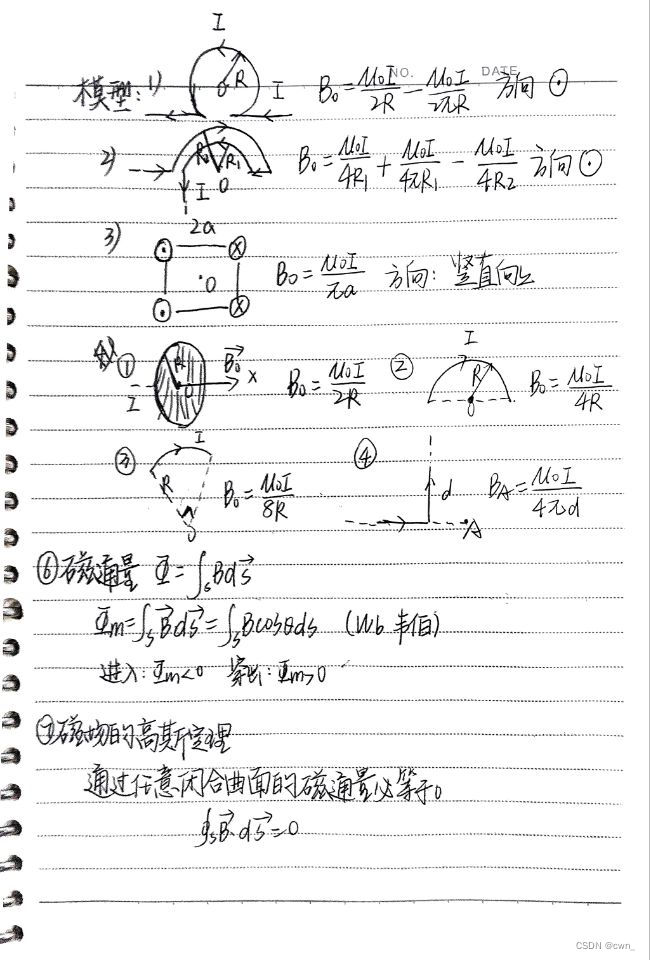 I
NO. DATE
模型: 1) R O I B₀ = μ₀I/2R − μ₀I/2πR 方向 ⊙
2) R₂ R₁ I O B₀ = μ₀I/4R₁ + μ₀I/4πR₁ − μ₀I/4R₂ 方向 ⊙
3) 2a O B₀ = μ₀I/πa 方向: 竖直向上
① R O I B₀ x B₀ = μ₀I/2R ② I R O B₀ = μ₀I/4R
③ I R O B₀ = μ₀I/8R ④ d A B_A = μ₀I/4πd
⑥ 磁通量 Φ = ∫ₛBds
Φm = ∫ₛB ds = ∫ₛBcosθds (Wb 韦伯)
进入: Φm<0 穿出: Φm>0
⑦ 磁场的高斯定理
通过任意闭合曲面的磁通量必等于0
∮ₛB·ds = 0
CSDN @cwn_